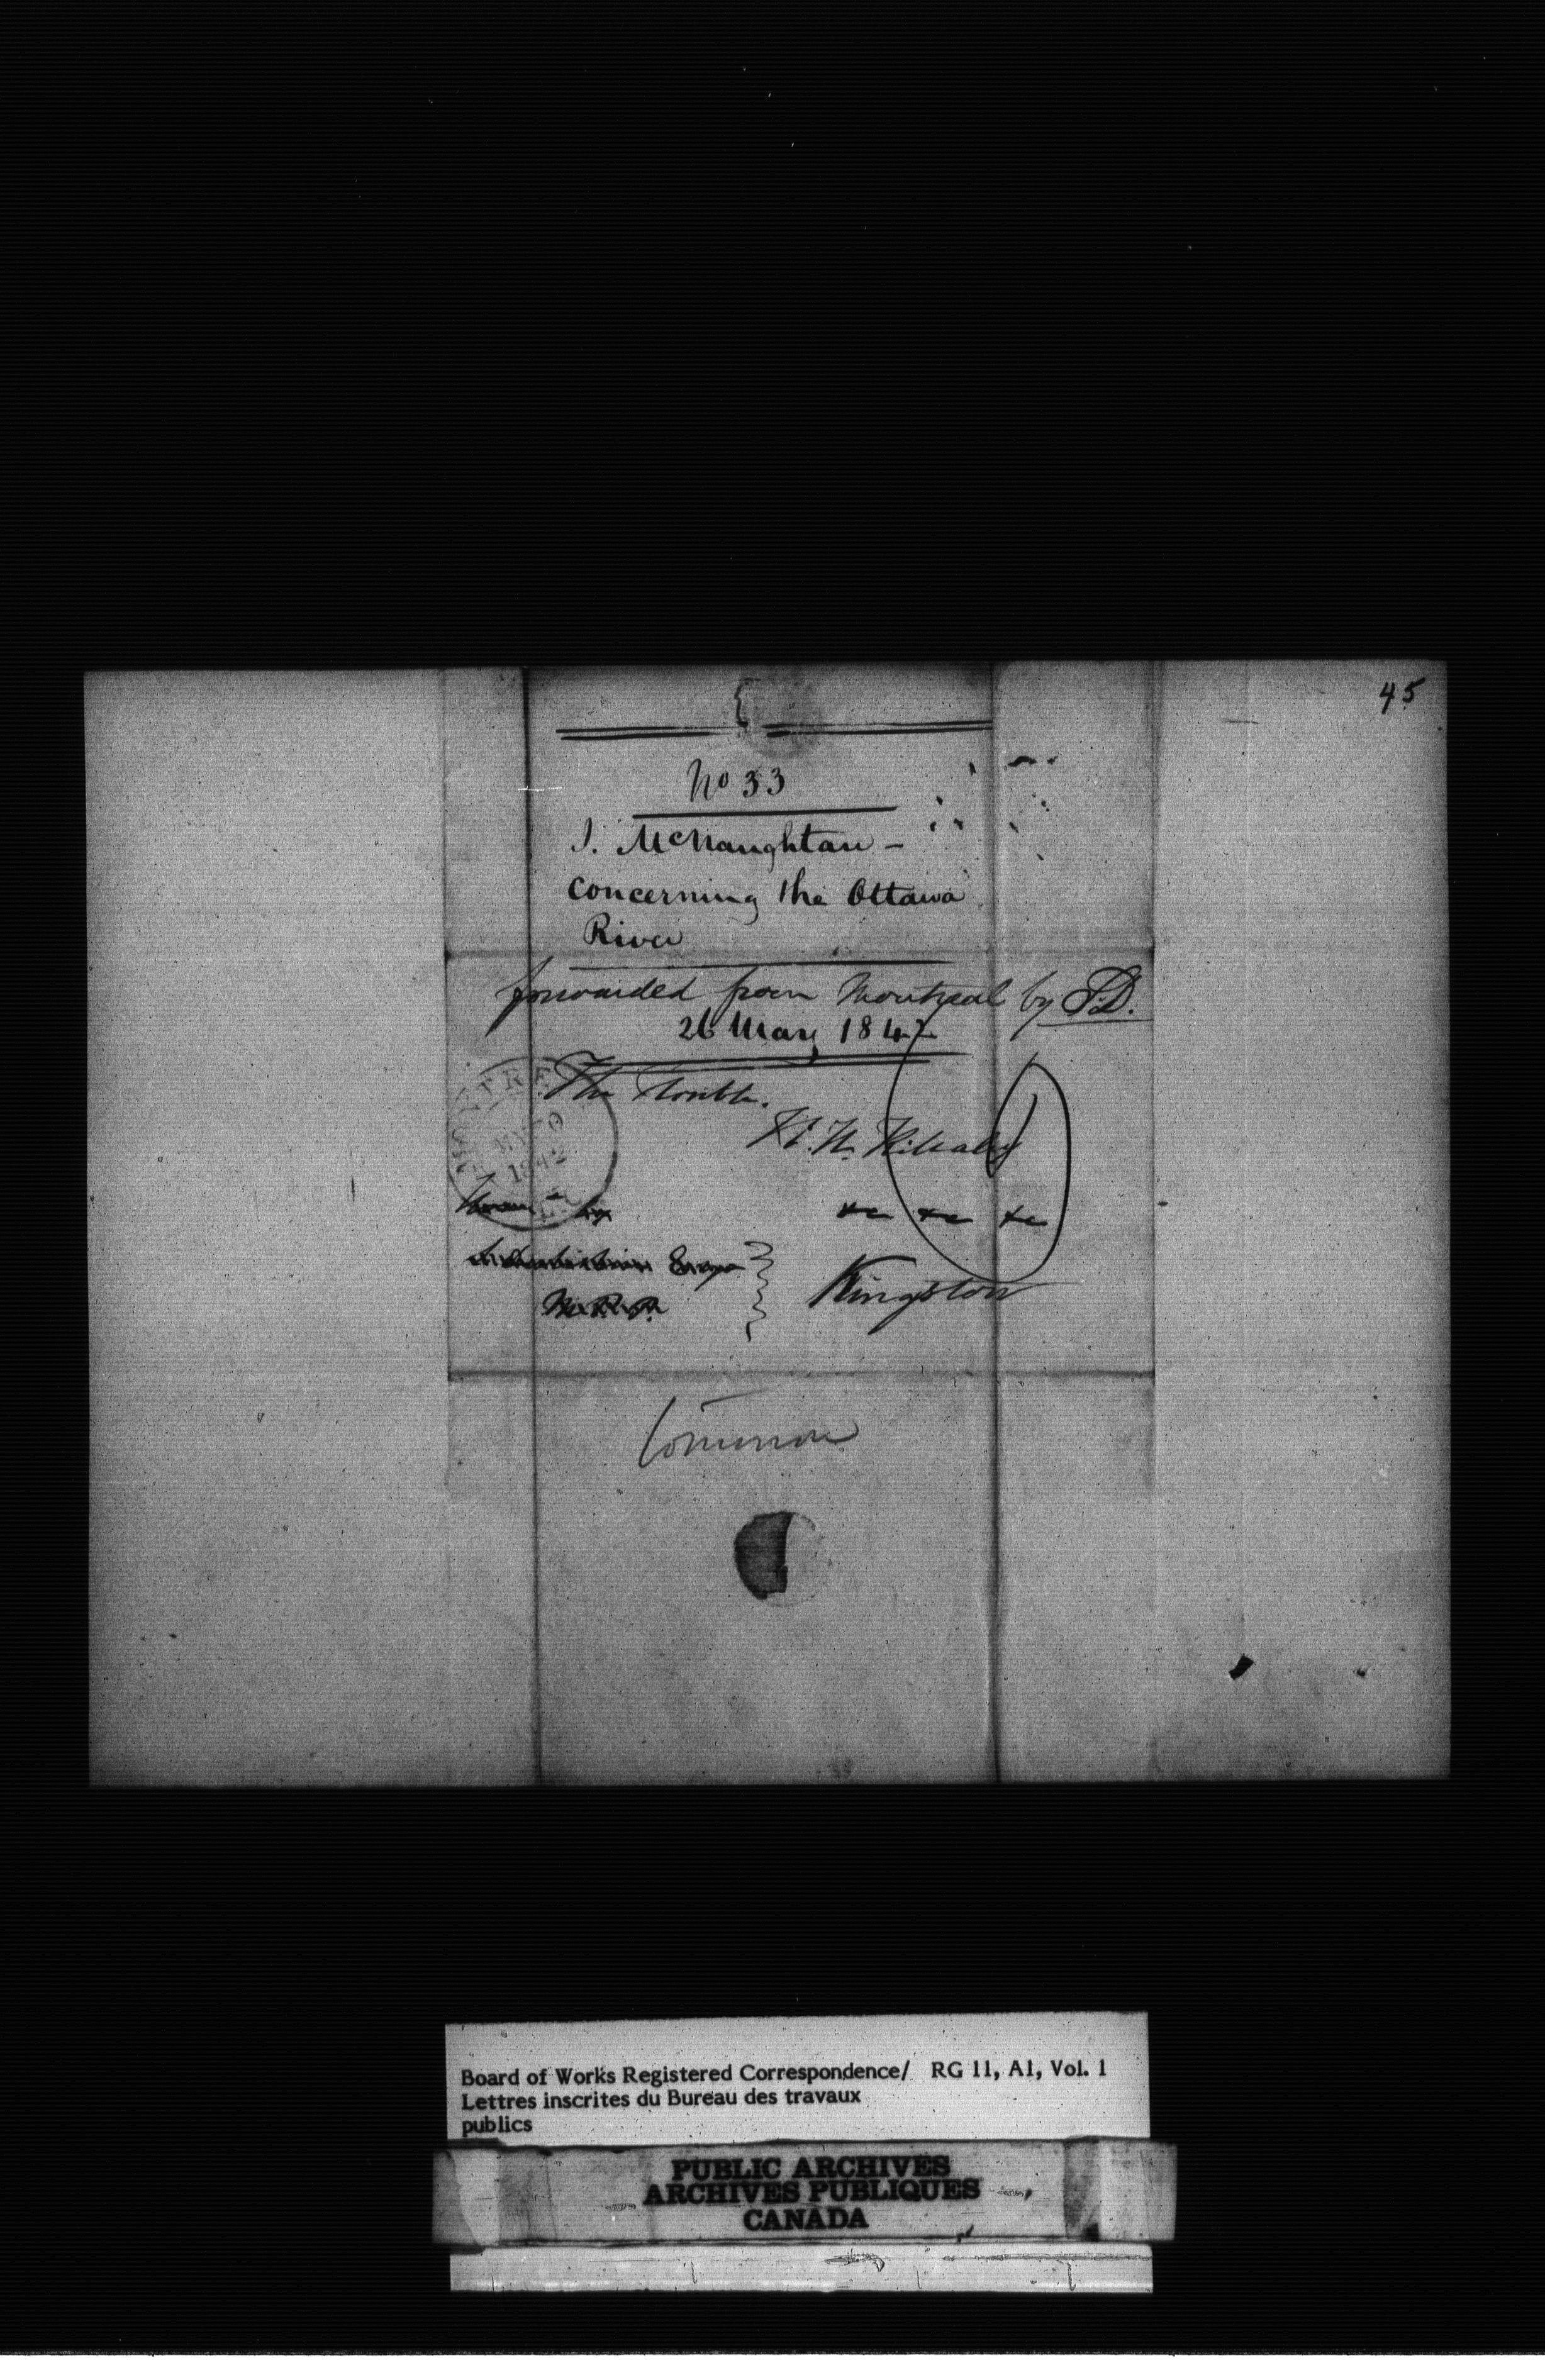 45
No 33
J. McNaughtan -
concerning the Ottawa
River
forwarded from Montreal by P.D.
26 May 1842
The Honble.
H. H. Killaly
&c &c &c
Esqr
M.P.P.
Kingston
Common
MONTREAL
1842
Board of Works Registered Correspondence/ RG 11, A1, Vol. 1
Lettres inscrites du Bureau des travaux
publics
PUBLIC ARCHIVES
ARCHIVES PUBLIQUES
CANADA